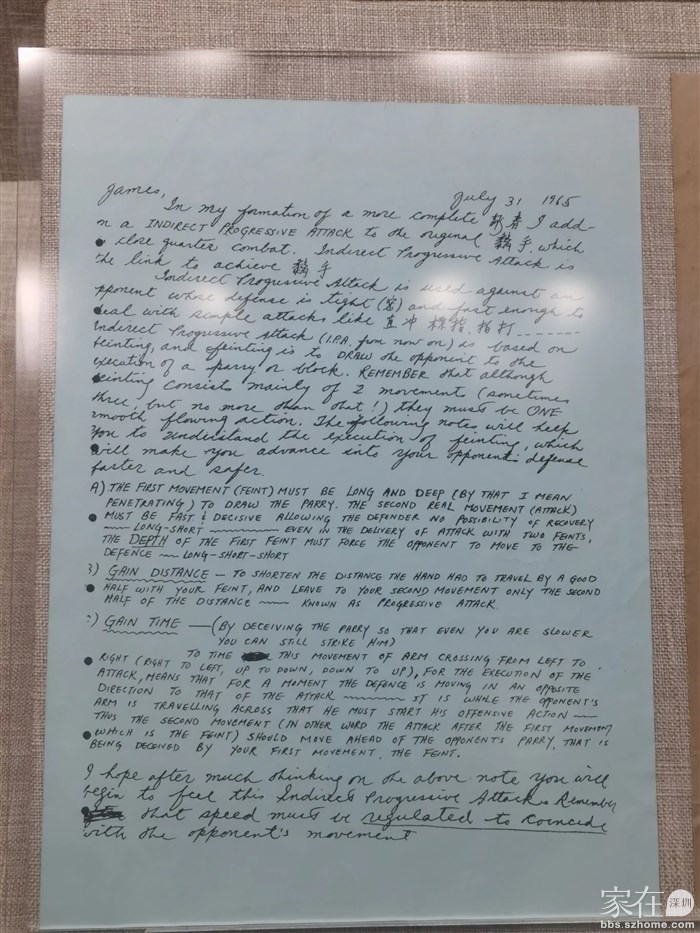 James,
July 31 1965
In my formation of a more complete 詠春 I add-
n a INDIRECT PROGRESSIVE ATTACK to the original 黐手 which
close quarter combat. Indirect Progressive Attack is
the link to achieve 黐手
Indirect Progressive Attack is used against an
pponent whose defense is tight (密) and fast enough to
deal with simple attacks like 直冲 標指, 指打
Indirect Progressive Attack (I.P.A. from now on) is based on
feinting, and feinting is to DRAW the opponent to the
execution of a parry or block. REMEMBER that although
einting consists mainly of 2 movements (sometimes
three, but no more than that!) they must be ONE
smooth flowing action. The following notes will help
you to understand the execution of feinting, which
will make you advance into your opponent's defense
faster and safer.
A) THE FIRST MOVEMENT (FEINT) MUST BE LONG AND DEEP (BY THAT I MEAN
PENETRATING) TO DRAW THE PARRY. THE SECOND REAL MOVEMENT (ATTACK)
MUST BE FAST & DECISIVE ALLOWING THE DEFENDER NO POSSIBILITY OF RECOVERY
— LONG-SHORT — EVEN IN THE DELIVERY OF ATTACK WITH TWO FEINTS,
THE DEPTH OF THE FIRST FEINT MUST FORCE THE OPPONENT TO MOVE TO THE
DEFENCE — LONG-SHORT-SHORT
3) GAIN DISTANCE — TO SHORTEN THE DISTANCE THE HAND HAD TO TRAVEL BY A GOOD
HALF WITH YOUR FEINT, AND LEAVE TO YOUR SECOND MOVEMENT ONLY THE SECOND
HALF OF THE DISTANCE — KNOWN AS PROGRESSIVE ATTACK.
) GAIN TIME — (BY DECEIVING THE PARRY SO THAT EVEN YOU ARE SLOWER
YOU CAN STILL STRIKE HIM)
TO TIME THIS MOVEMENT OF ARM CROSSING FROM LEFT TO
RIGHT (RIGHT TO LEFT, UP TO DOWN, DOWN TO UP), FOR THE EXECUTION OF THE
ATTACK, MEANS THAT FOR A MOMENT THE DEFENCE IS MOVING IN AN OPPOSITE
DIRECTION TO THAT OF THE ATTACK — IT IS WHILE THE OPPONENT'S
ARM IS TRAVELLING ACROSS THAT HE MUST START HIS OFFENSIVE ACTION —
THUS THE SECOND MOVEMENT (IN OTHER WORD THE ATTACK AFTER THE FIRST MOVEMENT
WHICH IS THE FEINT) SHOULD MOVE AHEAD OF THE OPPONENT'S PARRY, THAT IS
BEING DECEIVED BY YOUR FIRST MOVEMENT, THE FEINT.
I hope after much thinking on the above note you will
begin to feel this Indirect Progressive Attack. Remember
that speed must be regulated to coincide
with the opponent's movement
家在深圳
bbs.szhome.com